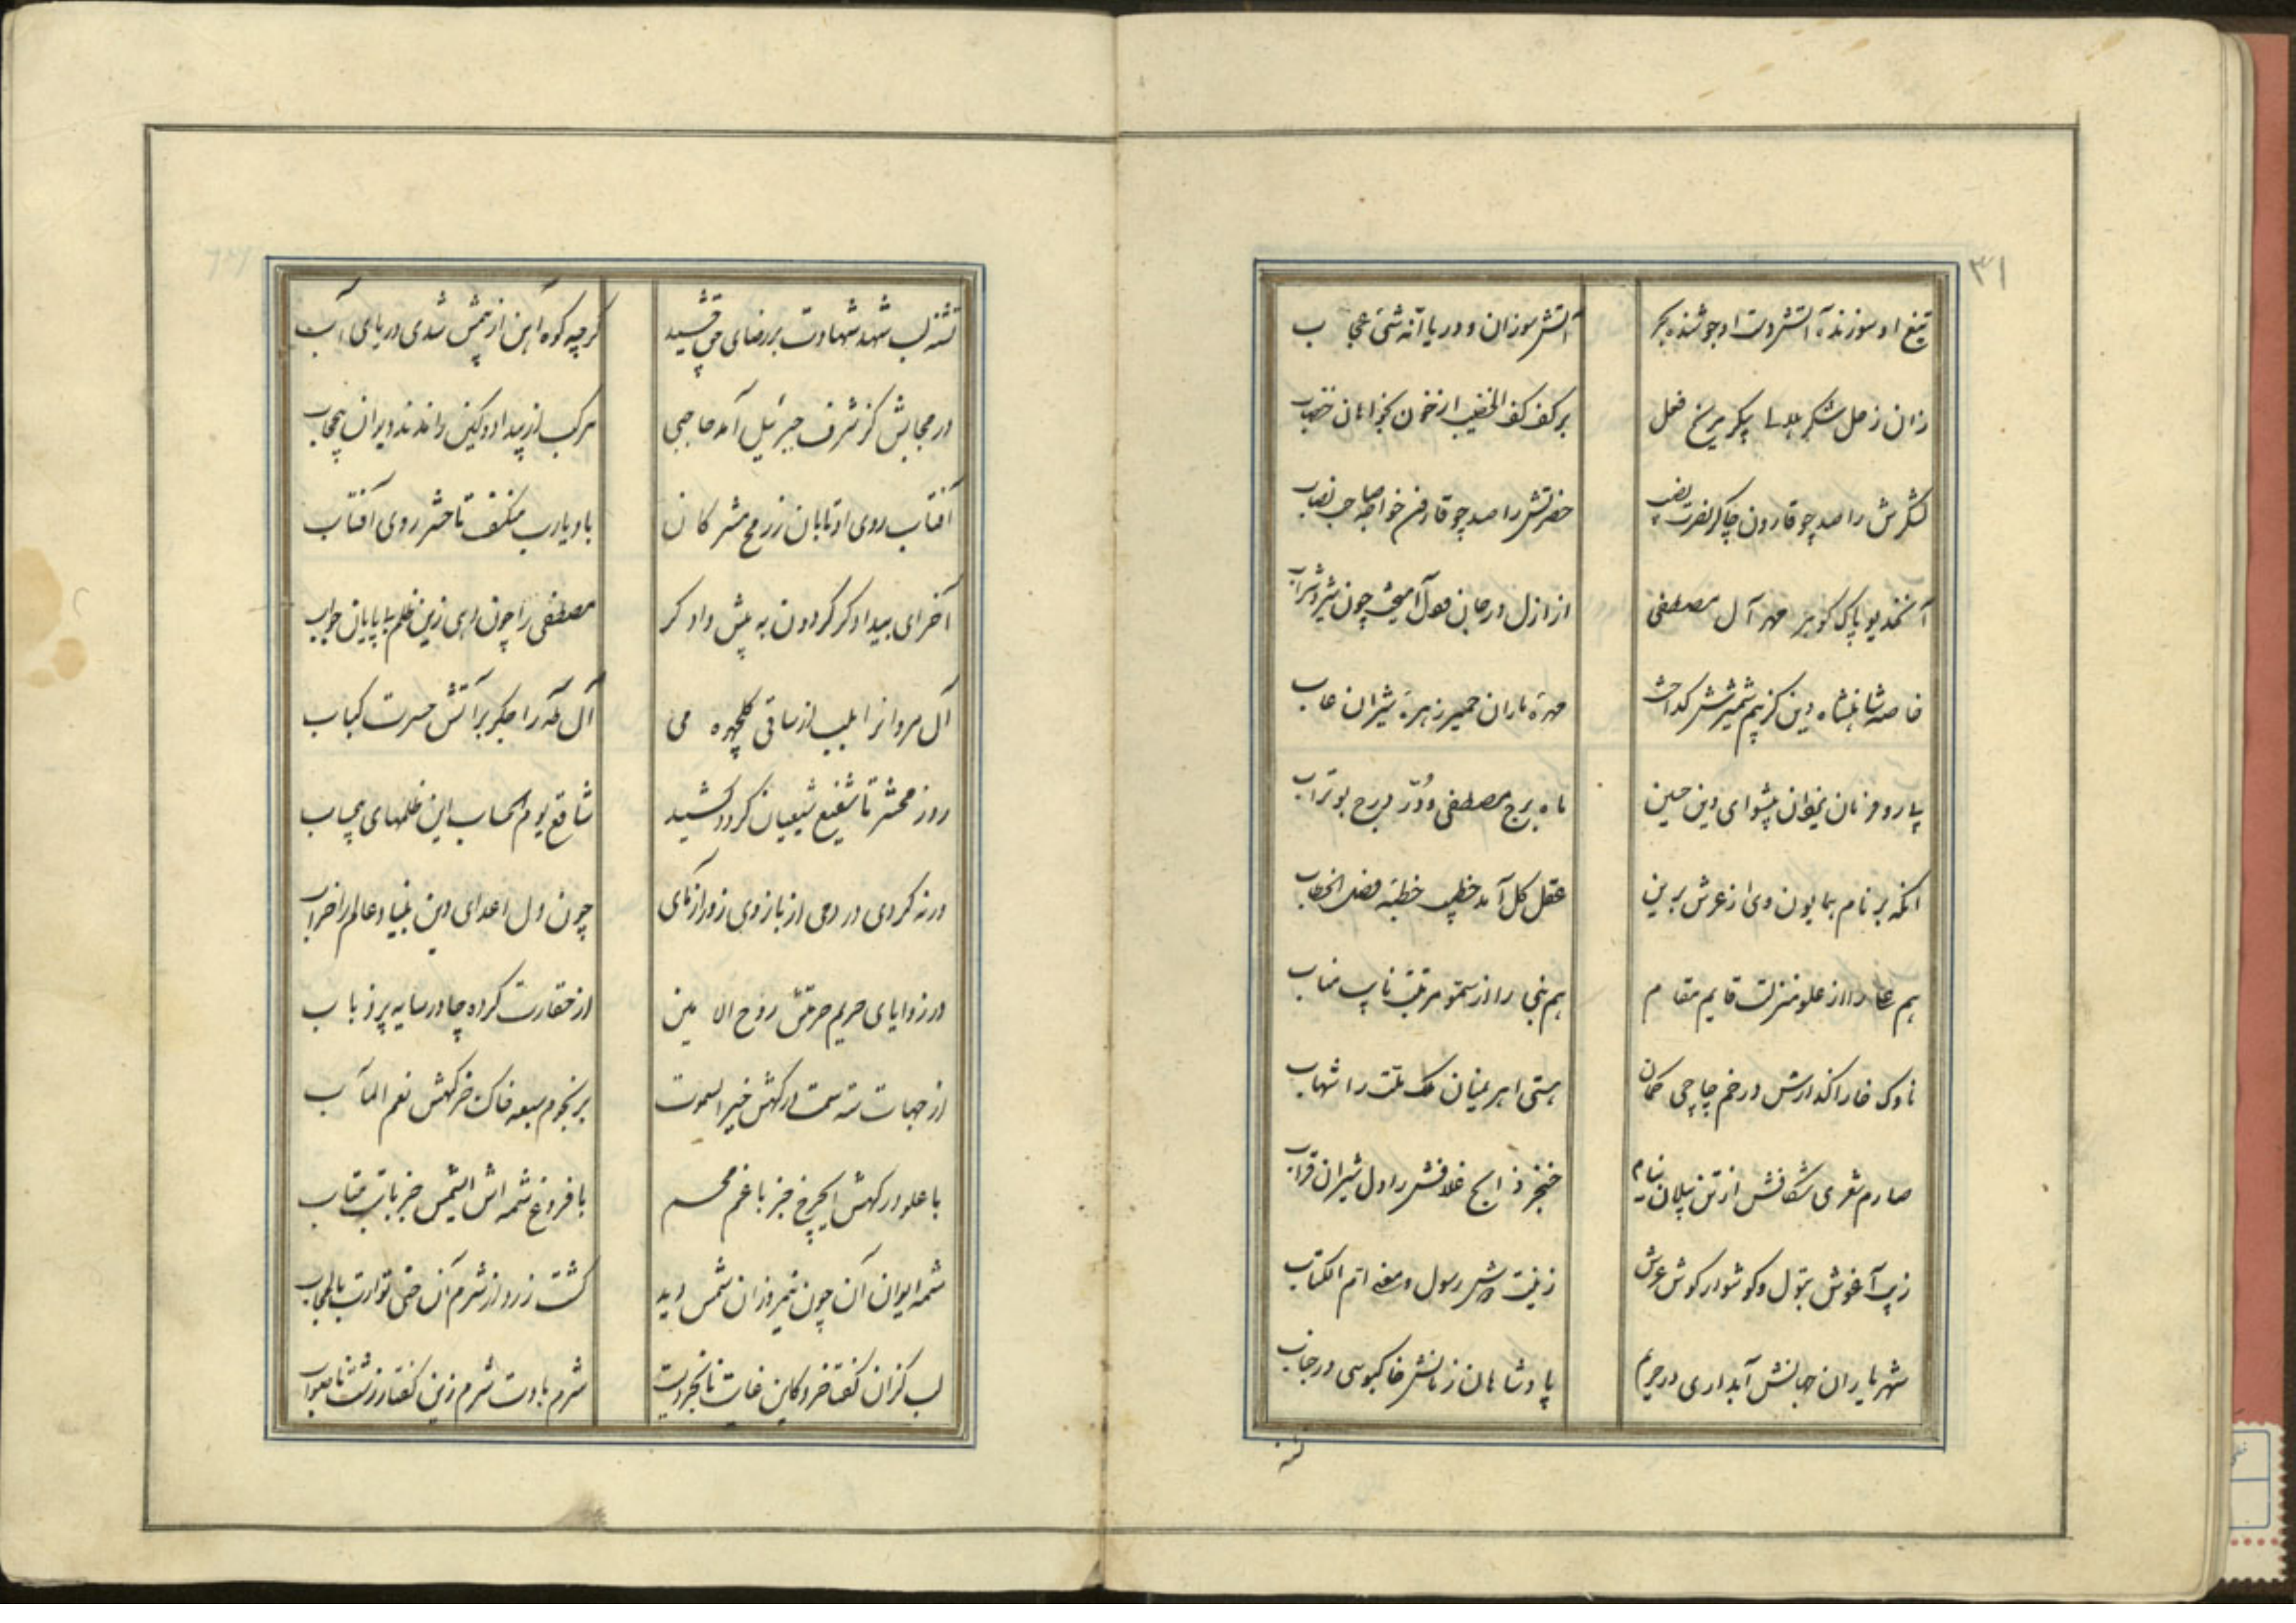 ۳۱
تیغ او سوزنده آتش دست او جوشنده بحر آتش سوزان و دریا انّه شیٔ عجاب
زان زحل لشکر پیکر مریخ فعل بر کف کف الخضیب از خون بخواهان خضاب
لشکرش را صد چو قارون چاکر نصرت نصیب حضرتش را صد چو قارون خواجه صاحب نصاب
آنخدیو پاک گوهر مهر آل مصطفی از ازل در جان و دل آمیخت چون شیر و شراب
خاصه شاهنشاه دین کز بیم شمشیرش گداخت مهره ماران حمیر زهره شیران غاب
پیشوای دین حسین ماه برج مصطفی و درّ درج بوتراب
آنکه بر نام همایون وی از عرش برین عقل کل آمد خطیب خطبه فصل الخطاب
هم را از علو منزلت قایم مقام هم نبی را از سمو مرتبت نایب مناب
ناوک خارا گذارش در خم چاچی کمان هستی اهریمنان ملک ملت را شهاب
صارم شعری شکافش از تن پیلان نیام خنجر غلافش را دل شیران قراب
زیب آغوش بتول و گوشوار گوش عرش زینت دوش رسول و معنی ام الکتاب
شهریاران جهانش آبداری در حریم پادشاهان زمانش خاکبوسی در جناب
تشنه
تشنه لب شهد شهادت بر رضای حق چشید گرچه کوه آهن از خشمش شدی دریای آب
در حجابش کز شرف جبرئیل آمد حاجبی مرکب از بیداد و کین راندند دیوان بیحجاب
آفتاب روی او تابان ز رمح مشرکان باد یارب منکسف تا حشر روی آفتاب
آخر ای بیدادگر گردون به پیش دادگر مصطفی را چون دهی زین ظلم بی پایان جواب
آل مروانرا بلب از ساقی گلچهره می آل طه را جگر بر آتش حسرت کباب
روز محشر تا شفیع شیعیان گردد کشید شافع یوم الحساب این ظلمهای بیحساب
ورنه کردی در دمی از بازوی زورآزمای چون دل اعدای دین بنیاد عالم را خراب
در زوایای حریم حرمتش روح الامین از حقارت کرده جا در سایه پر ذباب
از جهات سته سمت درگهش خیر السموت بر نجوم سبعه خاک خرگهش نعم المآب
با علو درگهش ایچرخ جز با غم مخسب با فروغ شمسه اش ایشمس جز با تب متاب
شمسه ایوان آن چون نیمروزان شمس دید گشت زرد از شرم آن حتی توارت بالحجاب
لب گزان گفتا خرد کاین غایت نابخردیست شرم بادت شرم زین گفتار زشت ناصواب